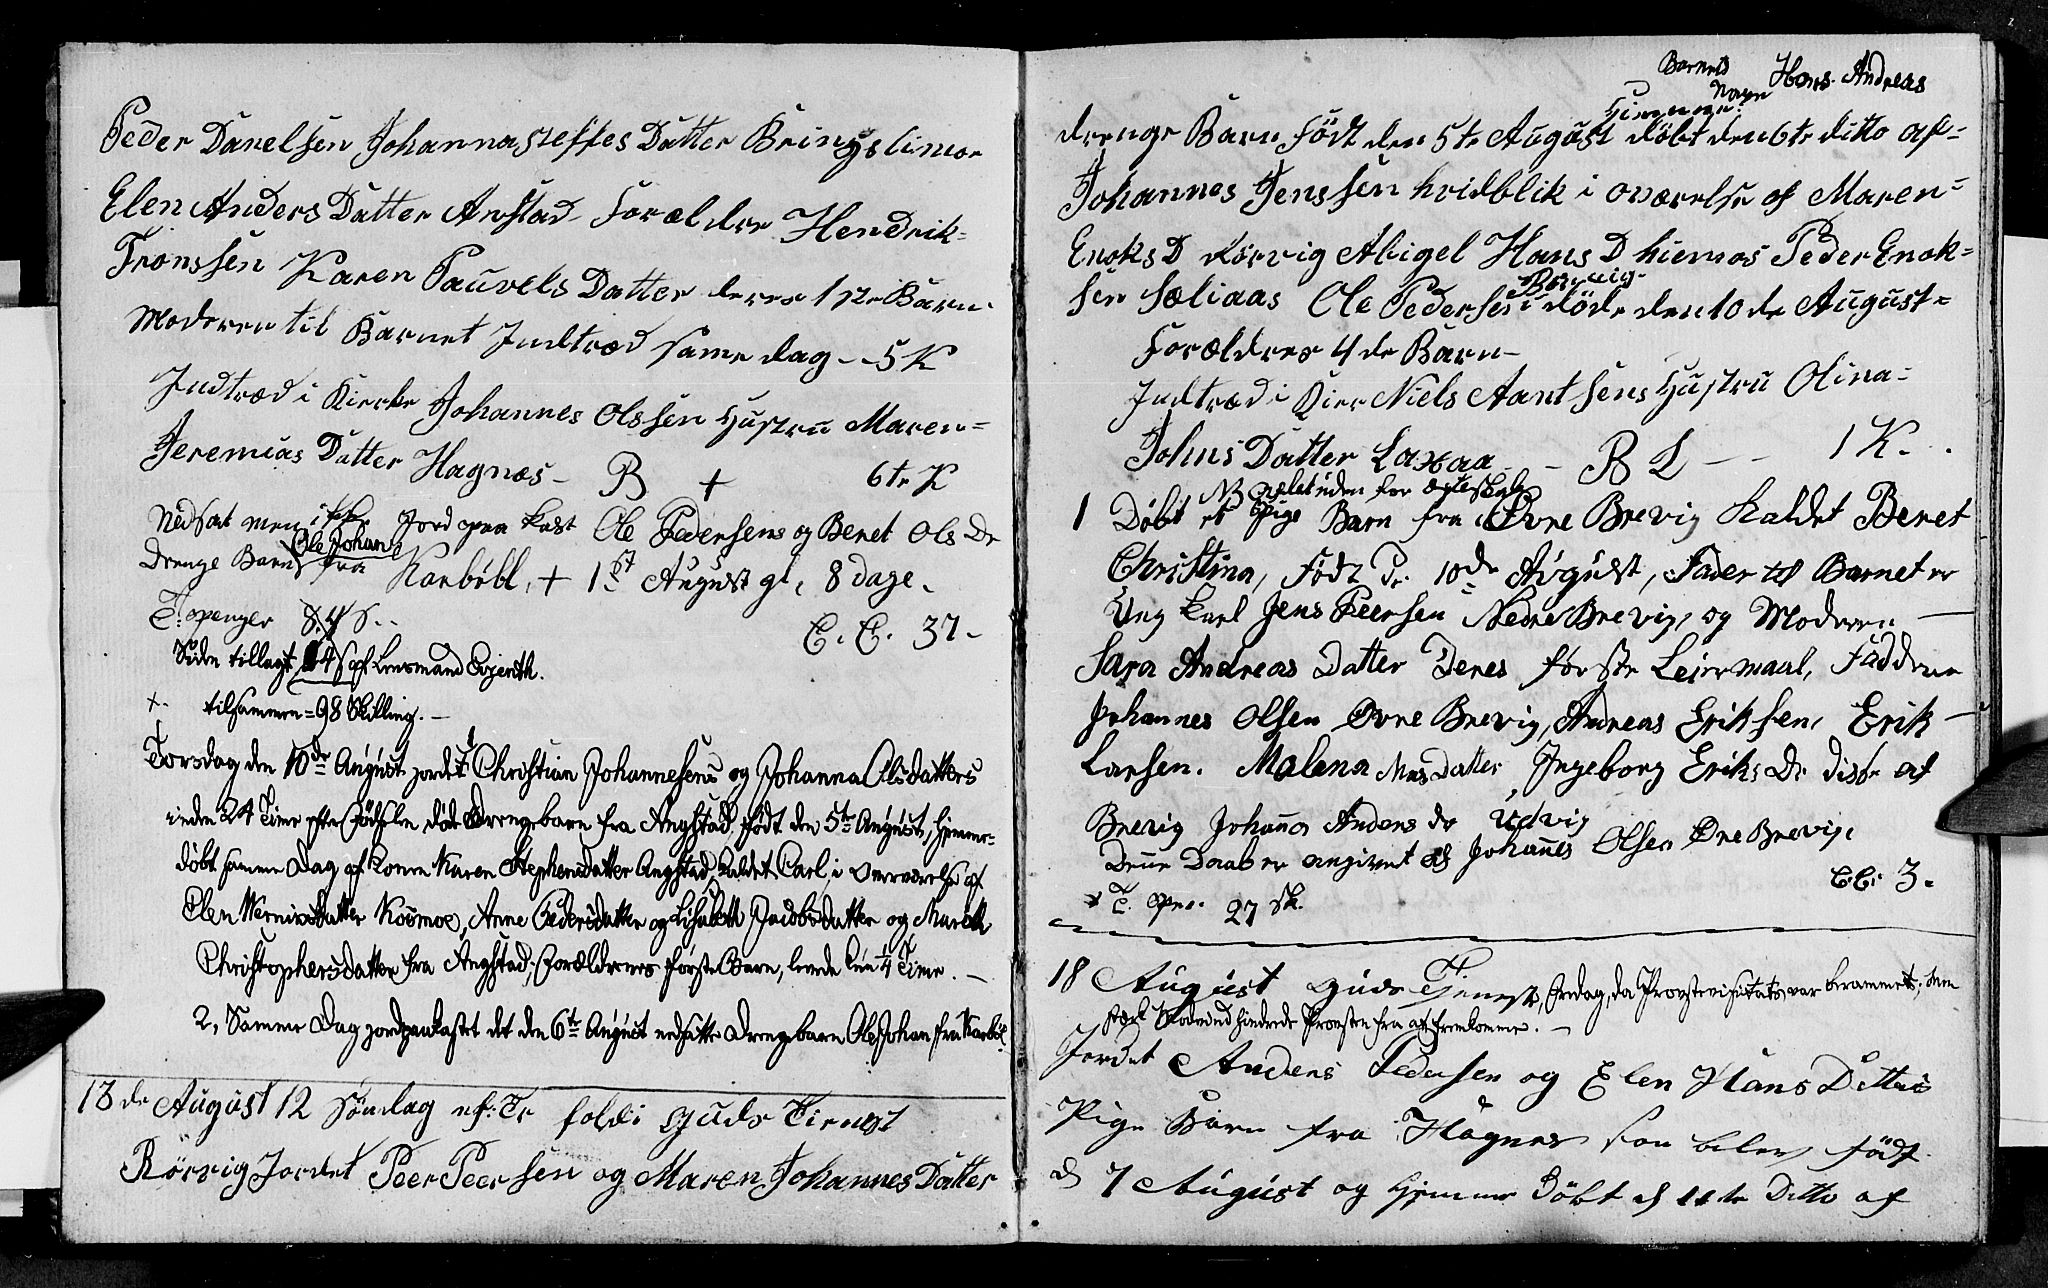 Peder Danelsen Johanna Steffes Datter Bringslimor
Elen Anders Datter Anstad Forældre Hendrik=
Tronssen Karen Pauvels Datter deres 1ste Barn.
Moderen til Barnet Indtræd same dag - - 5 K
Indtræd i Kierke Johannes Olssen Hustru Maren=
Jeremias Datter Hagnæs - B + 6te K
Nedsat men ikke Jord paa kast Ole Pedersens og Benet Ols Dr
Drenge Barn Ole Johan fra Karbøbl, + 1st August gl, 8 dage.
T. penger 8.4 S..
C. C. 37.
Siden tillagt 14 S af Lensmand Evjenth.
+. tilsammen = 98 Skilling. -
Torsdag den 10de August jordet 1 Christian Johannesens og Johanna Olsdatters
inden 24 Timer efter Fødselen døde Drengebarn fra Angstad, født den 5te August, hjemme-
døbt samme Dag af Konen Karen Stephensdatter Angstad, kaldet Carl, i Overværelse af
Elen Kosmoe, Anne Pedersdatter og Lisabeth Jacobsdatter og Mareth
Christophersdatter fra Angstad; Forældrenes første Barn, levede kun 1/4 Time. -
2, Samme Dag jordpaakastet det den 6te August nedsatte Drengebarn Ole Johan fra Karbøl.
13 de August 12 Søndag ef: Tr foldi Guds Tienest
Rørvig Jordet Peer Peersen og Maren Johannes Datter
Barnets Navn Hans Andreas
Hiemme
drenge Barn født den 5te August døbt den 6te ditto af=
Johannes Jenssen hvidblik i overelse af Maren=
Enoks D Rørvig Abigel Hans D hiemos Peder Enok=
sen Sæliaas Ole Pedersen Rørvig døde den 10de August=
Forældres 4de Barn-
Indtræd i Kier Niels Aantsens Hustru Olina=
Johns Datter Laxaa - - B L - - 1 K.
NB avlet uden for ægteskab
1 Døbt et Pige Barn fra Øvre Brevig Kaldet Beret
Christina, Født d: 10de August, Fader til Barnet er
Ung karl Jens Peersen Nedre Brevig, og Moderen
Sara Andreas Datter Deres første Leiermaal, Faddere
Johannes Olsen Øvre Brevig, Andreas Eriksen, Erik
Larsen. Malena Datter, Ingeborg Eriks Dr disse af
Brevig Johana Anders dr Udvig
Denne Daab er angivet af Johanes Olsen Øvre Brevig.
C. C. 3.
+ T. pen. 27 sk.
18 August Guds Tjeneste, Fredag, da Provstevisitats var berammet; Men
stærk Modvind hindrede Provsten fra at fremkomme. -
Jordet Anders Pedersen og Elen Hans Datters
Pige Barn fra Hagnes som blev født
d 7 August og Hjemme Døbt d 11te Ditto af